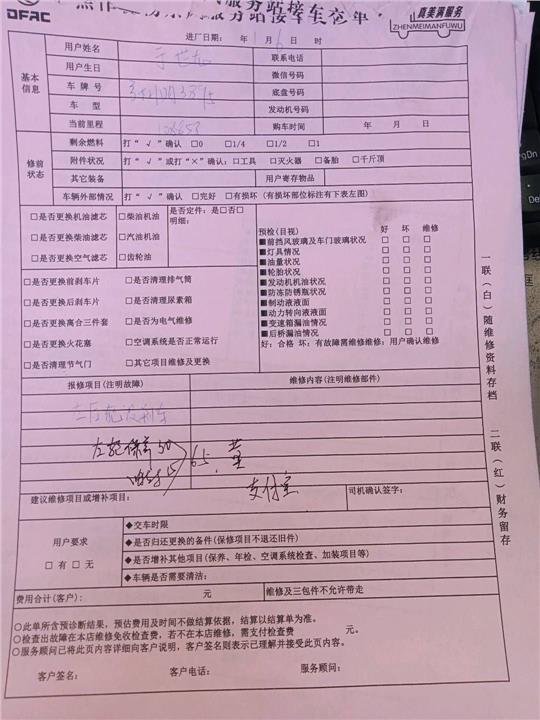 DFAC
服务站接车检查单
真美满服务
ZHENMEIMANFUWU
进厂日期: 1月6日 时
基本信息
用户姓名 联系电话
用户生日 微信号码
车牌号 底盘号码
车型 发动机号码
当前里程 购车时间 年 月 日
修前状态
剩余燃料 打“√”确认 □0 □1/4 □1/2 □1
附件状况 打“√”或打“×”确认:□工具 □灭火器 □备胎 □千斤顶
其它装备 用户寄存物品
车辆外部情况 打“√”确认 □完好 □有损坏(有损坏部位标注有下表左图)
□是否更换机油滤芯 □柴油机油 是否定件:是□否□
明细:
□是否更换柴油滤芯 □汽油机油
□是否更换空气滤芯 □齿轮油
□是否更换前刹车片 □是否清理排气筒
□是否更换后刹车片 □是否清理尿素箱
□是否更换离合三件套 □是否为电气维修
□是否更换火花塞 □空调系统是否正常运行
□是否清理节气门 □其它项目维修及更换
预检(目视) 好 坏 维修
■前挡风玻璃及车门玻璃状况 □ □ □
■灯具情况 □ □ □
■油量状况 □ □ □
■轮胎状况 □ □ □
■发动机机油状况 □ □ □
■防冻防锈瓶状况 □ □ □
■制动液液面 □ □ □
■动力转向液液面 □ □ □
■变速箱漏油情况 □ □ □
■后桥漏油情况 □ □ □
好:合格 坏:有故障需维修维修:用户确认维修
报修项目(注明故障) 维修内容(注明维修部件)
左后轮没刹车
50
15
65.
支付宝
建议维修项目或增补项目: 司机确认签字:
用户要求
□有□无
◆交车时限
◆是否归还更换的备件(保修项目不退还旧件)
◆是否增补其他项目(保养、年检、空调系统检查、加装项目等)
◆车辆是否需要清洁:
费用合计(客户): 元 维修及三包件不允许带走
○此单所含预诊断结果,预估费用及时间不做结算依据,结算以结算单为准。
○检查出故障在本店维修免收检查费,若不在本店维修,需支付检查费 元。
○服务顾问已将此页内容详细向客户说明,客户签名则表示已理解并接受此页内容。
客户签名: 客户电话: 服务顾问:
一联(白)随维修资料存档 二联(红)财务留存